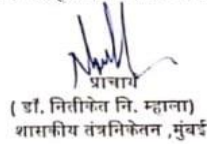 प्राचार्य
( डॉ. नितीकेत नि. म्हाला)
शासकीय तंत्रनिकेतन ,मुंबई